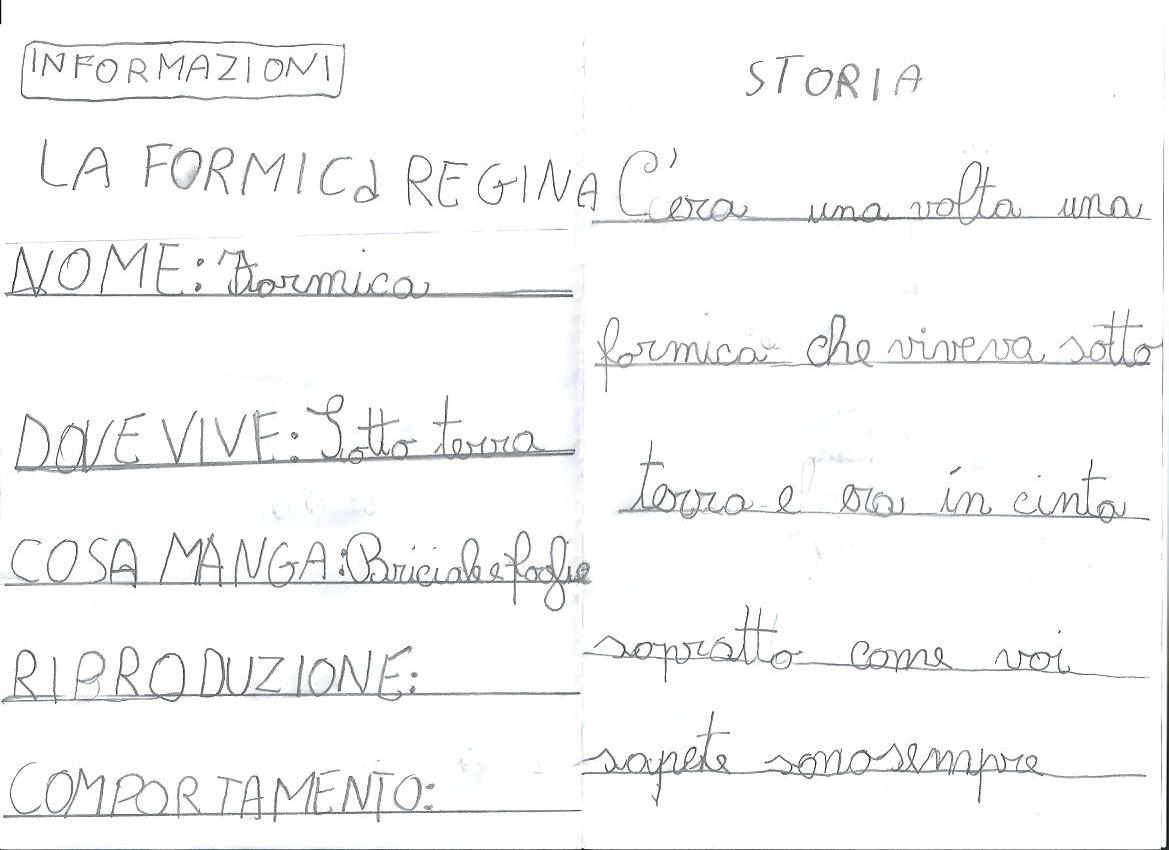 INFORMAZIONI
LA FORMICa REGINA
NOME: Formica
DOVE VIVE: Sotto terra
COSA MANGA: Briciole e foglie
RIPRODUZIONE:
COMPORTAMENTO:
STORIA
C'era una volta una
formica che viveva sotto
terra e era in cinta
sopratto come voi
sapete sono sempre